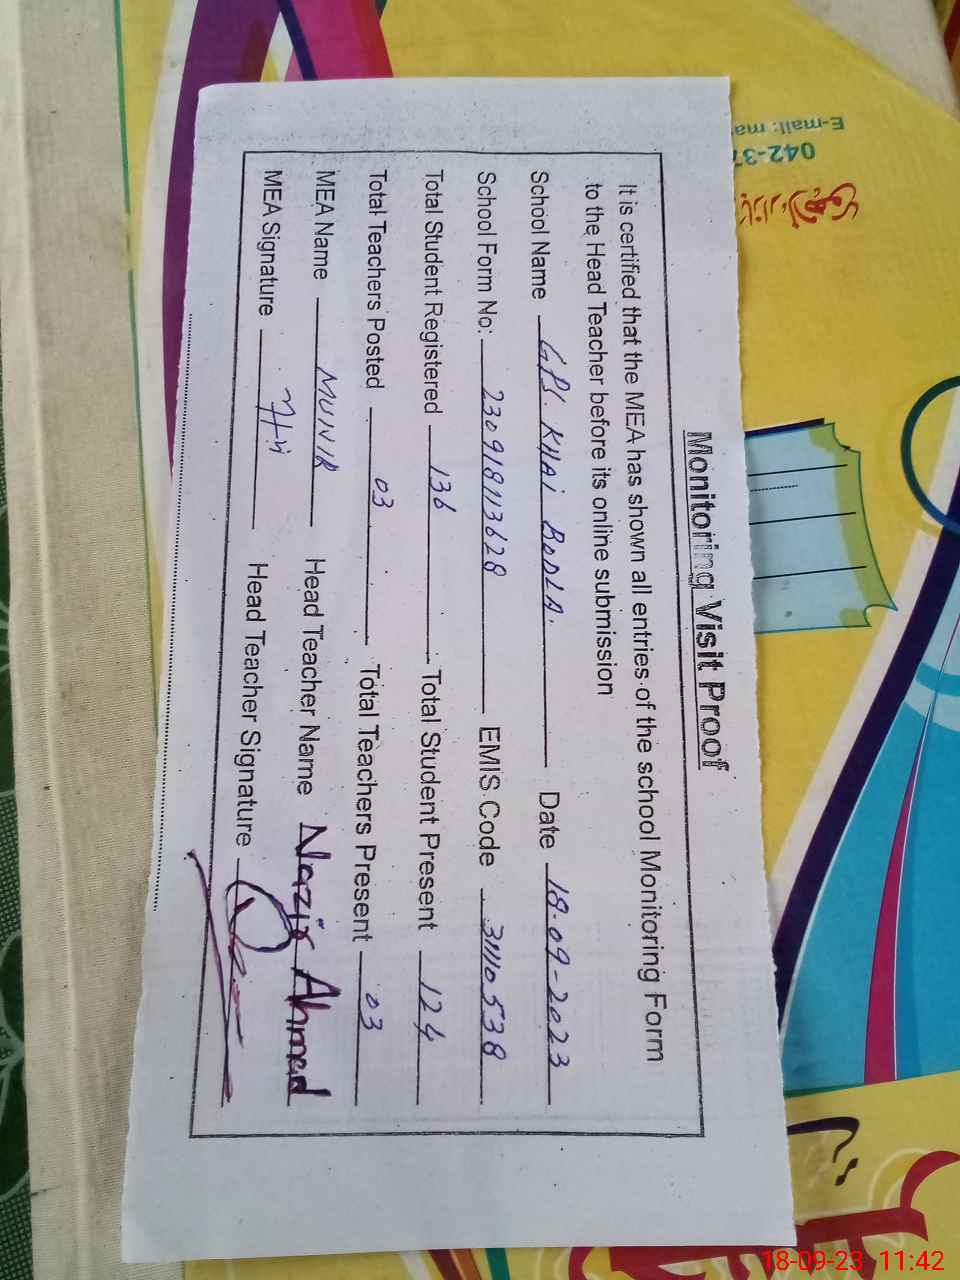 Monitoring Visit Proof
It is certified that the MEA has shown all entries of the school Monitoring Form
to the Head Teacher before its online submission
School Name GPS. KHAI BODLA. Date 18-09-2023
School Form No: 230918113628 EMIS Code 31110538
Total Student Registered 136 Total Student Present 124
Total Teachers Posted 03 Total Teachers Present 03
MEA Name MUNIR Head Teacher Name Nazir Ahmed
MEA Signature Head Teacher Signature
E-mail: ma
042-37
18-09-23 11:42